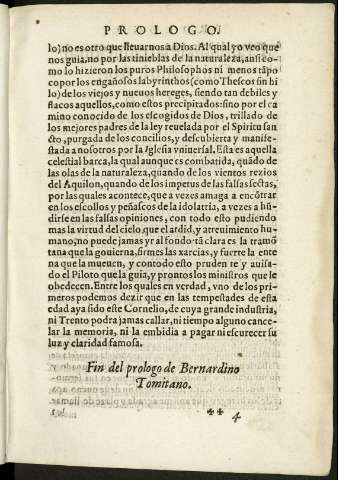 PROLOGO.
lo) no es otro que lleuarnos a Dios. Al qual yo veo que
nos guia, no por las tinieblas de la naturaleza, ansi co-
mo lo hizieron los puros Philosophos ni menos tãpo
co por los engañosos labyrinthos (como Theseos sin hi
lo) de los viejos y nueuos hereges, siendo tan debiles y
flacos aquellos, como estos precipitados: sino por el ca
mino conocido de los escogidos de Dios, trillado de
los mejores padres de la ley reuelada por el Spiritu san
cto, purgada de los concilios, y descubierta y manife-
stada a nosotros por la Iglesia vniuersal. Esta es aquella
celestial barca, la qual aunque es combatida, quãdo de
las olas de la naturaleza, quando de los vientos rezios
del Aquilon, quando de los impetus de las falsas sectas,
por las quales acontece, que a vezes amaga a encõtrar
en los escollos y peñascos de la idolatria, a vezes a hũ-
dirse en las falsas opiniones, con todo esto pudiendo
mas la virtud del cielo, que el ardid, y atreuimiento hu-
mano; no puede jamas yr al fondo. tã clara es la tramõ
tana que la gouierna, firmes las xarcias, y fuerte la ente
na que la mueuen, y con todo esto pruden te y auisa-
do el Piloto que la guia, y prontos los ministros que le
obedecen. Entre los quales en verdad, vno de los pri-
meros podemos dezir que en las tempestades de esta
edad aya sido este Cornelio, de cuya grande industria,
ni Trento podra jamas callar, ni tiempo alguno cance-
lar la memoria, ni la embidia a pagar ni escurecer su
luz y claridad famosa.
Fin del prologo de Bernardino
Tomitano.
4